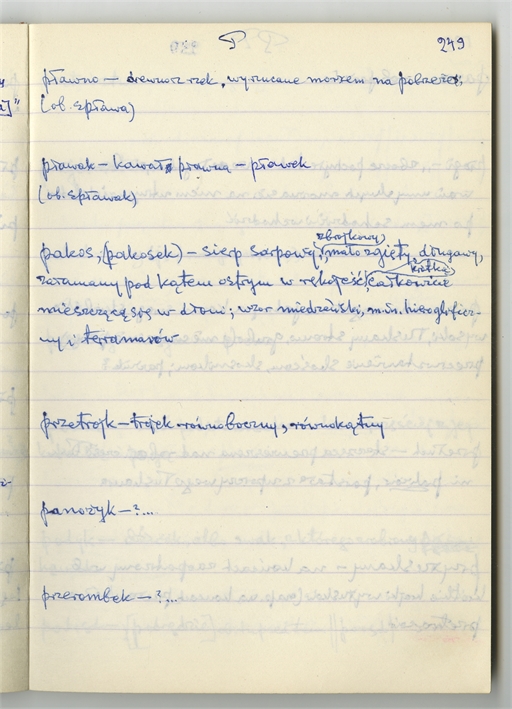 P 249
pławno – drewno z rzek, wyrzucane morzem na pobrzeże
(ob. spława)
pławak – kawał pławna – pławek
(ob. spławak)
zbrojkowy
pakos, (pakosek) – sierp sarpowy, mało zgięty, długawy,
krótką
załamany pod kątem ostrym w rękojeść, całkowicie
mieszczącą się w dłoni; wzór miedzański, m.in. hieroglificz-
ny i terramarów
przetrojk – trójek równoboczny, równokątny
panożyk – ?...
przerombek – ?...